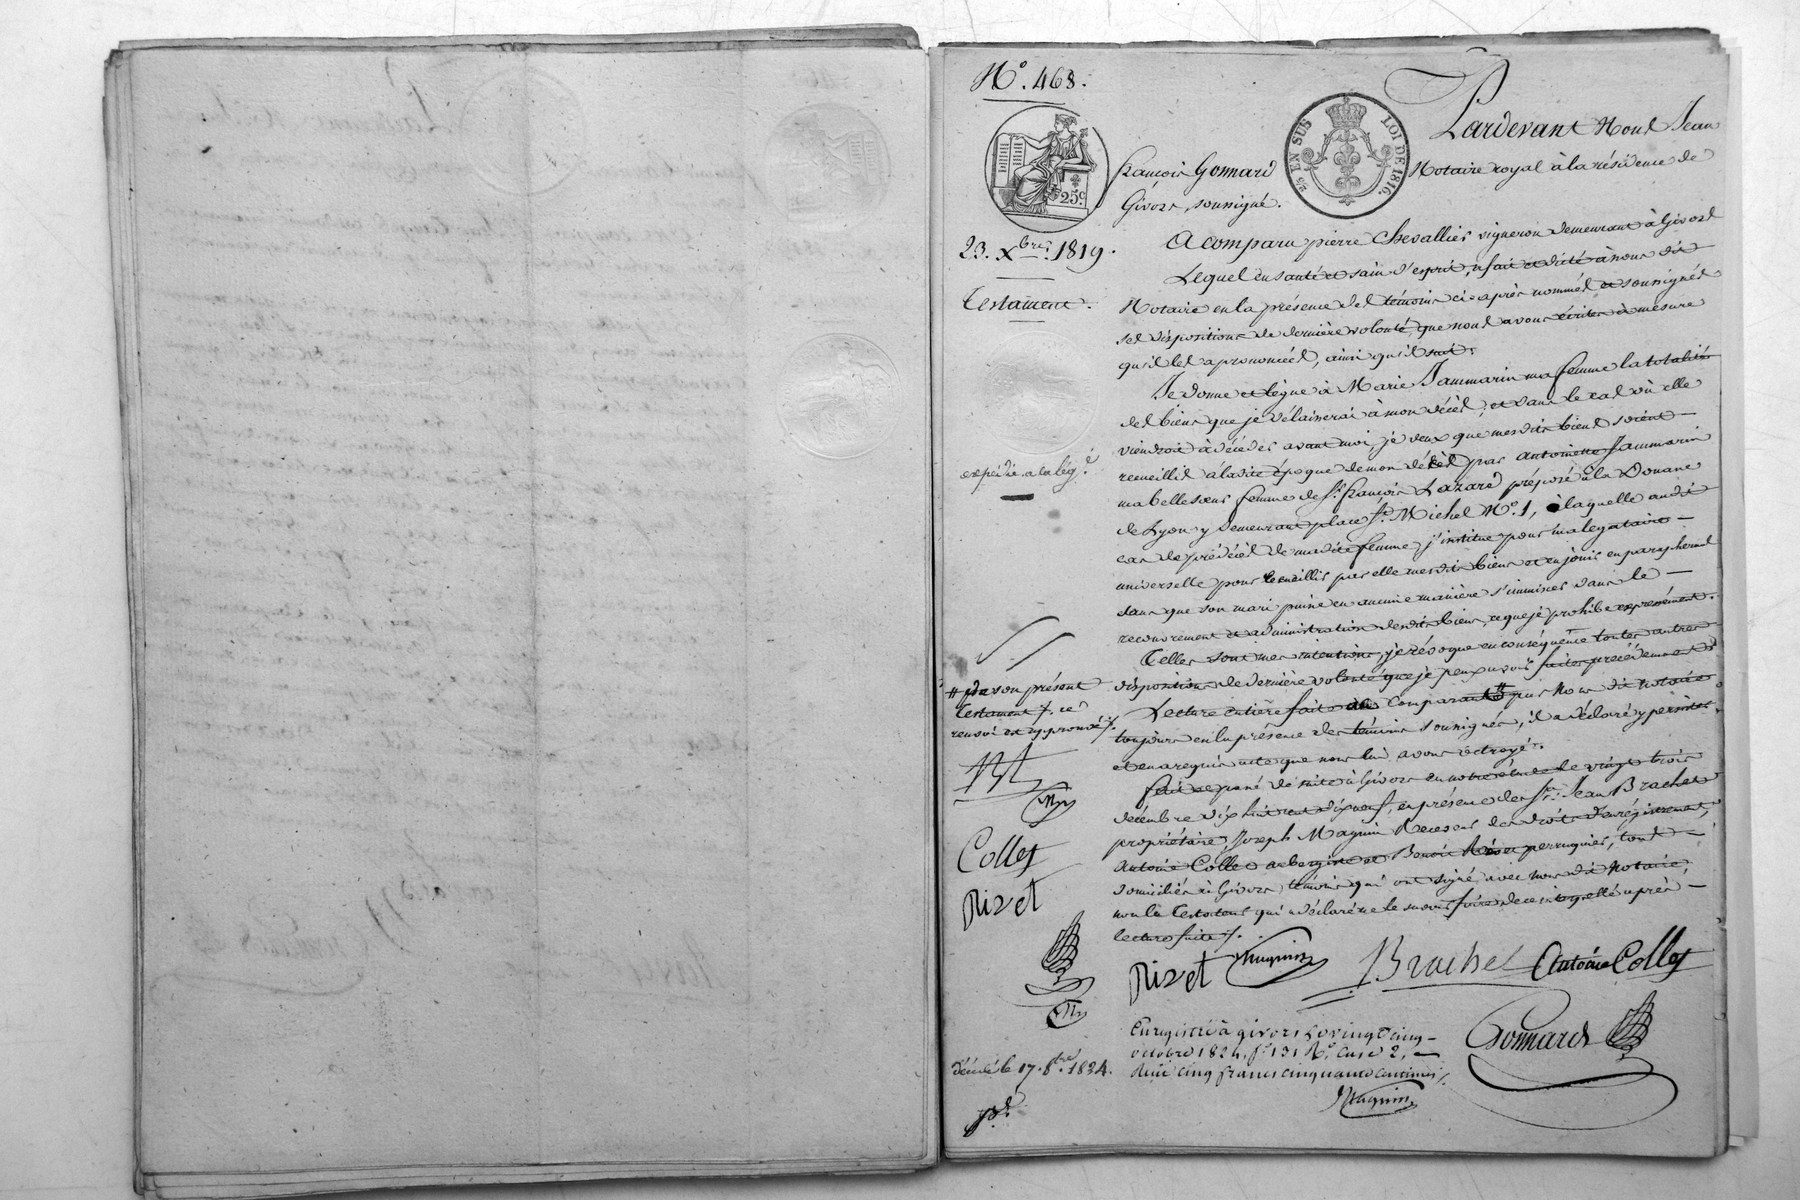 N.° 468.
Pardevant Nous Jean
françois Gonnard
Notaire royal à la résidence de
Givors, soussigné.
25 EN SUS LOI DE 1816.
25c
23. Xbre. 1819.
Testament.
A comparu pierre Chevallier vigneron demeurant à Givors
Lequel en santé et sain d'esprit, a fait et dicté à nous dit
Notaire en la présence des témoins ci-après nommés et soussignés
ses dispositions de dernière volonté que nous avons écrites à mesure
qu'il les a prononcées, ainsi qu'il suit.
Je donne et lègue à Marie Jammarin ma femme la totalité
des biens que je délaisserai à mon décès, et dans le cas où elle
viendroit à décéder avant moi, je veux que mesdits biens soient
recueillis à ladite époque de mon décès par antoinette Jammarin
ma belle sœur femme de Sr. françois Lazare préposé à la Douane
de Lyon y demeurant place St. Michel N.° 1, à laquelle audit
cas de prédécès de madite femme, j'institue pour ma legataire
universelle pour recueillir par elle mesdits biens et en jouir en paraphernal
sans que son mari puisse en aucune manière s'immiscer dans le
recouvrement et administration desdits biens, ce que je prohibe expressément.
Telles sont mes intentions, je révoque en conséquence toutes autres
dispositions de dernière volonté que je peux avoir faites précédemment
Lecture entière faite au Comparant # par Nous dit notaire
toujours en la présence des témoins soussignés, il a déclaré y persister
et en a requis acte que nous lui avons octroyé.
fait et passé de suite à Givors en notre étude le vingt trois
décembre dix huit cent dix neuf, en présence de Srs. Jean Brachet
propriétaire, Joseph Magnin Receveur des droits d'enregistrement,
Antoine Collet aubergiste et Benoit Rivet perruquier, tous
domiciliés à Givors, témoins qui ont signé avec nous dit Notaire,
non le Testateur qui a déclaré ne le savoir faire de ce interpellé après
lecture faite ./.
expédié a la lég.e
# de son présent
Testament ./. ce
renvoi est approuvé ./.
Collet
Rivet
Rivet Magnin Brachet Antoine Collet
Gonnard
Enregistré à givors le vingt cinq
octobre 1824, f.° 131 R.° Case 2,
Reçu cinq francs cinquante centimes
Magnin
décédé le 17. 8bre. 1824.